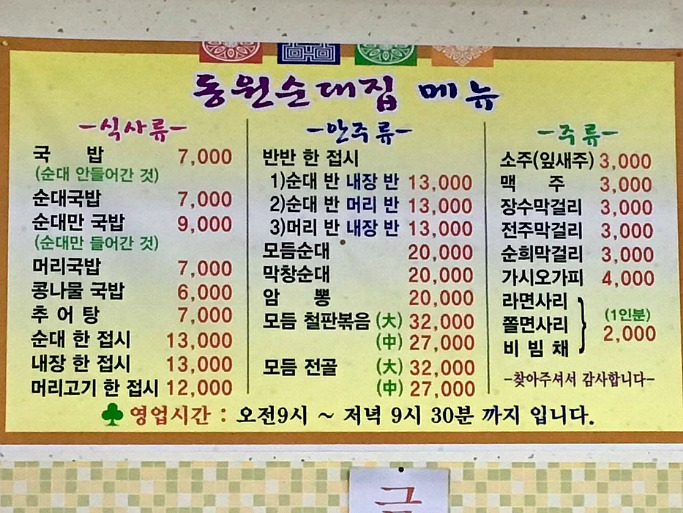 동원순대집 메뉴
-식사류-
국 밥 7,000
(순대 안들어간 것)
순대국밥 7,000
순대만 국밥 9,000
(순대만 들어간 것)
머리국밥 7,000
콩나물 국밥 6,000
추 어 탕 7,000
순대 한 접시 13,000
내장 한 접시 13,000
머리고기 한 접시 12,000
-안주류-
반반 한 접시
1)순대 반 내장 반 13,000
2)순대 반 머리 반 13,000
3)머리 반 내장 반 13,000
모듬순대 20,000
막창순대 20,000
암 뽕 20,000
모듬 철판볶음 (大) 32,000
(中) 27,000
모듬 전골 (大) 32,000
(中) 27,000
-주류-
소주(잎새주) 3,000
맥 주 3,000
장수막걸리 3,000
전주막걸리 3,000
순희막걸리 3,000
가시오가피 4,000
라면사리
쫄면사리
비 빔 채
(1인분)
2,000
-찾아주셔서 감사합니다-
♣ 영업시간 : 오전9시 ~ 저녁 9시 30분 까지 입니다.